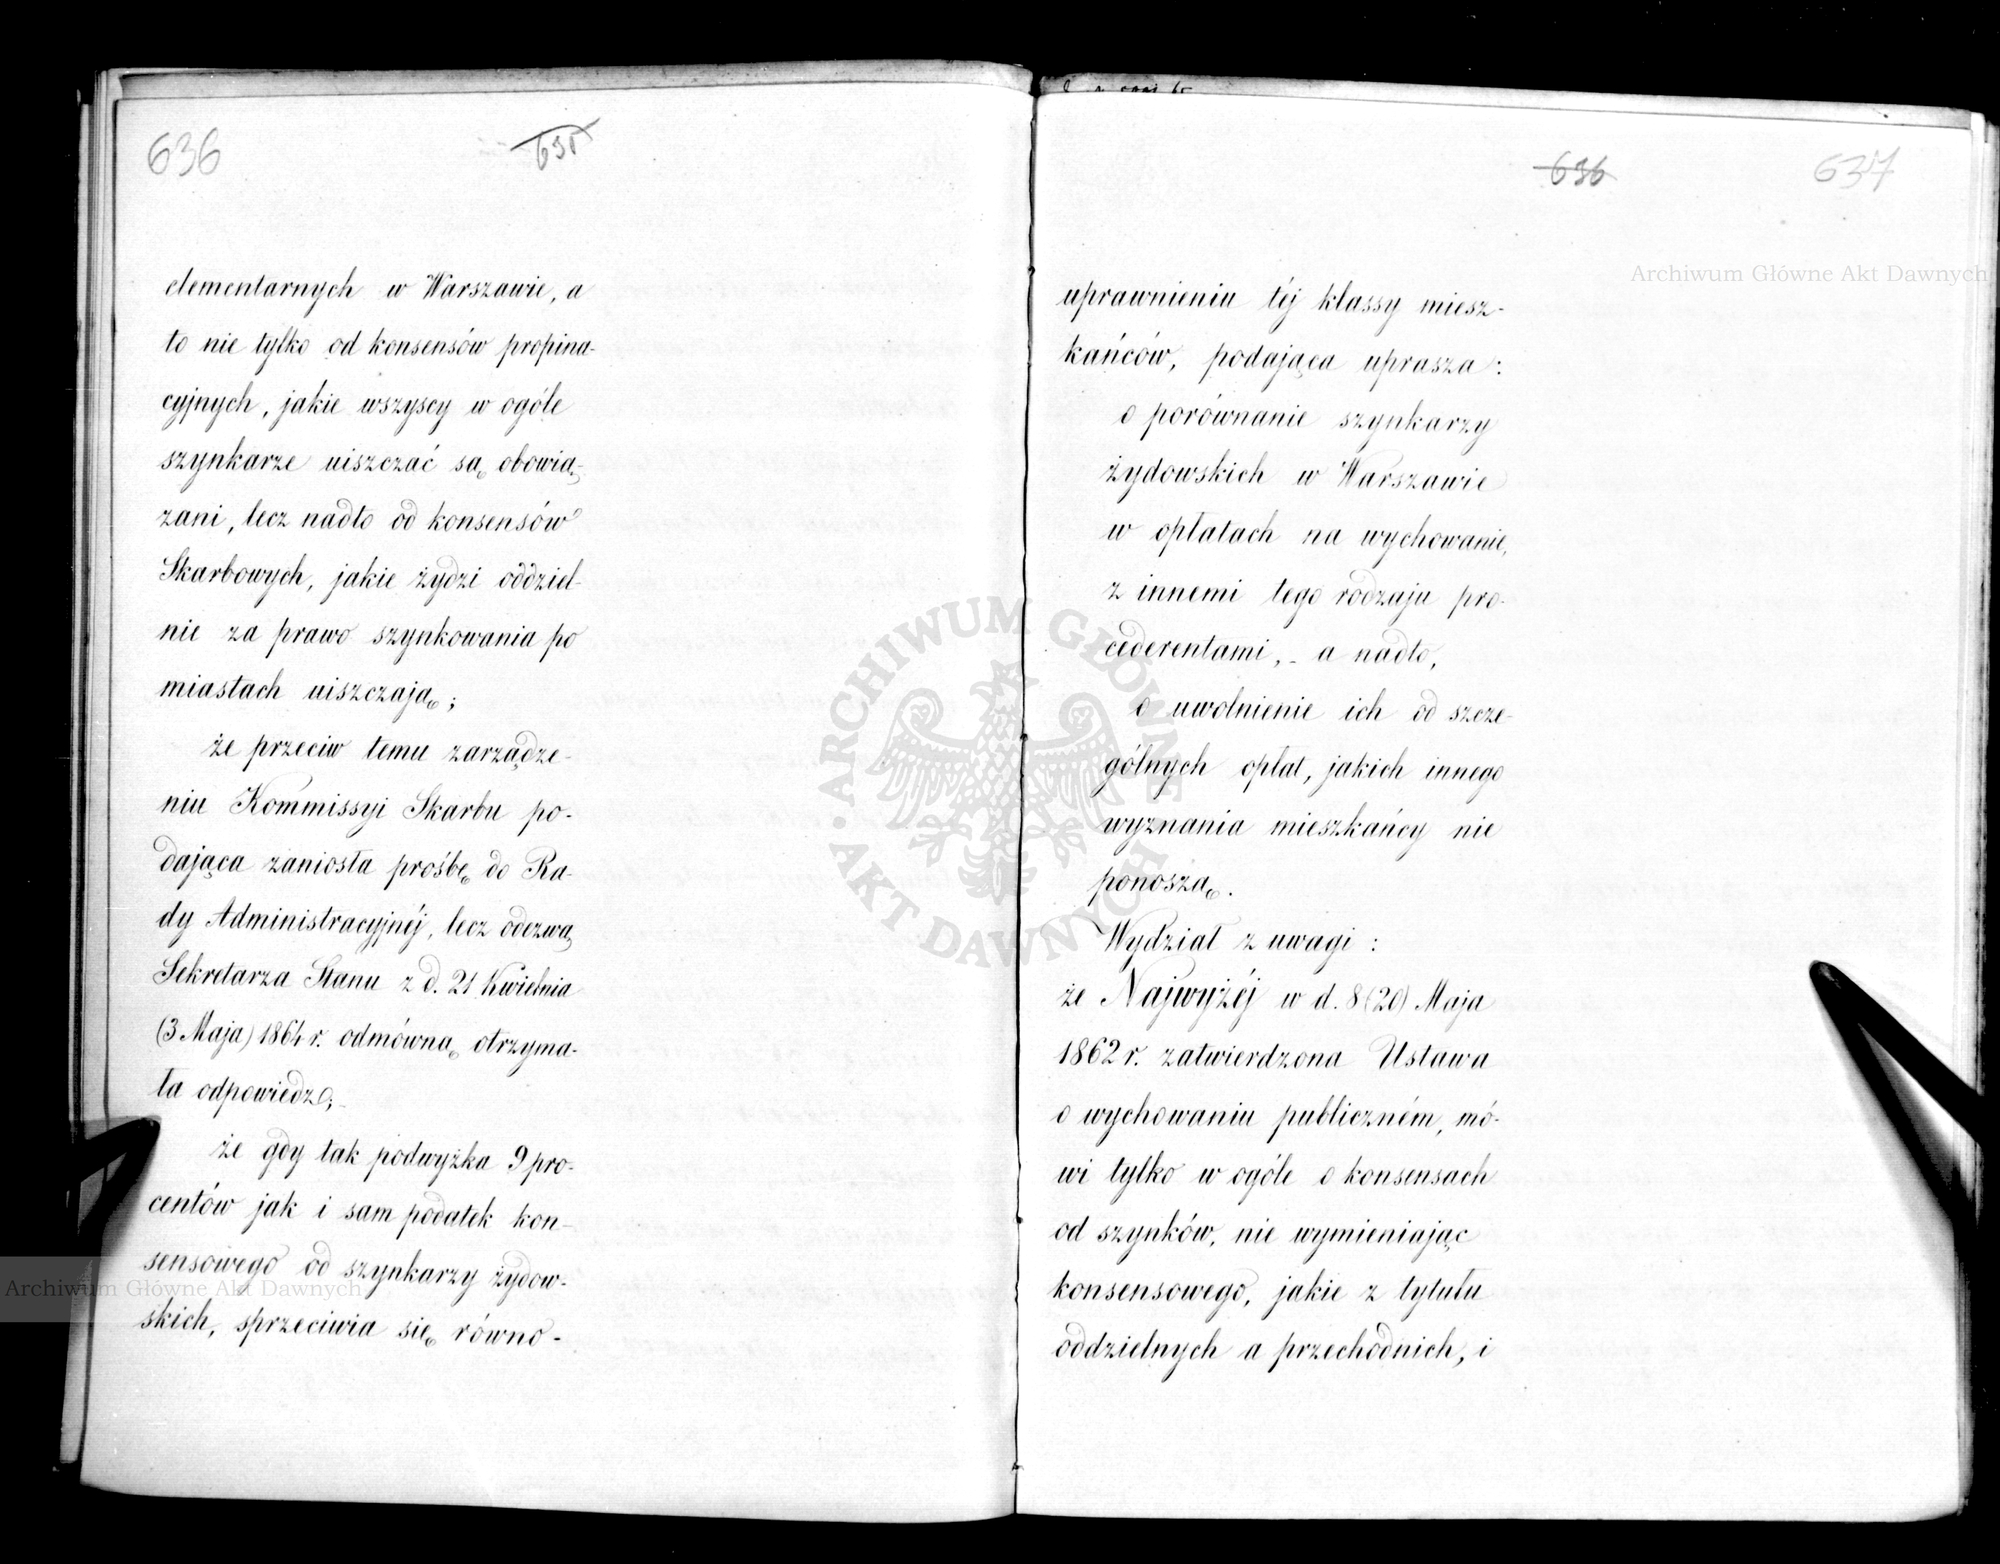 636
635
elementarnych w Warszawie, a
to nie tylko od konsensów propina-
cyjnych, jakie wszyscy w ogóle
szynkarze uiszczać są obowią-
zani, lecz nadto od konsensów
Skarbowych, jakie żydzi oddziel-
nie za prawo szynkowania po
miastach uiszczają;
że przeciw temu zarządze-
niu Kommissyi Skarbu po-
dająca zaniosła prośbę do Ra-
dy Administracyjnéj, lecz odezwą
Sekretarza Stanu z d. 21 Kwietnia
(3 Maja) 1864 r. odmówną otrzyma-
ła odpowiedz;
że gdy tak podwyżka 9 pro-
centów jak i sam podatek kon-
sensowego od szynkarzy żydow-
skich, sprzeciwia się równo-
636
637
uprawnieniu téj klassy miesz-
kańców, podająca uprasza:
o porównanie szynkarzy
żydowskich w Warszawie
w opłatach na wychowanie,
z innemi tego rodzaju pro-
cederentami, - a nadto,
o uwolnienie ich od szcze-
gólnych opłat, jakich innego
wyznania mieszkańcy nie
ponoszą.
Wydział z uwagi:
że Najwyżéj w d. 8 (20) Maja
1862 r. zatwierdzona Ustawa
o wychowaniu publiczném, mó-
wi tylko w ogóle o konsensach
od szynków, nie wymieniając
konsensowego, jakie z tytułu
oddzielnych a przechodnich, i
Archiwum Główne Akt Dawnych
Archiwum Główne Akt Dawnych
ARCHIWUM GŁÓWNE AKT DAWNYCH